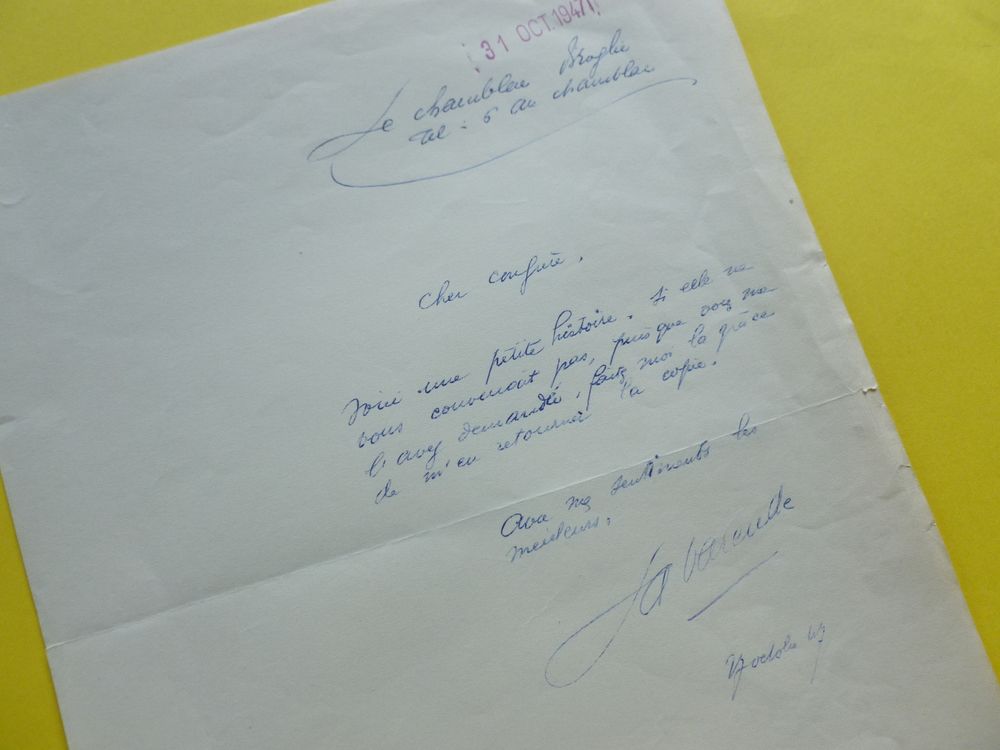 31 OCT. 1947
Le Chamblac Broglie
Tel : 6 au Chamblac
Cher confrère,
Joint une petite histoire. Si elle ne
vous convenait pas, puisque vous me
l'avez demandée, faites moi la grâce
de m'en retourner la copie.
Avec mes sentiments les
meilleurs.
La Varende
27 octobre 47